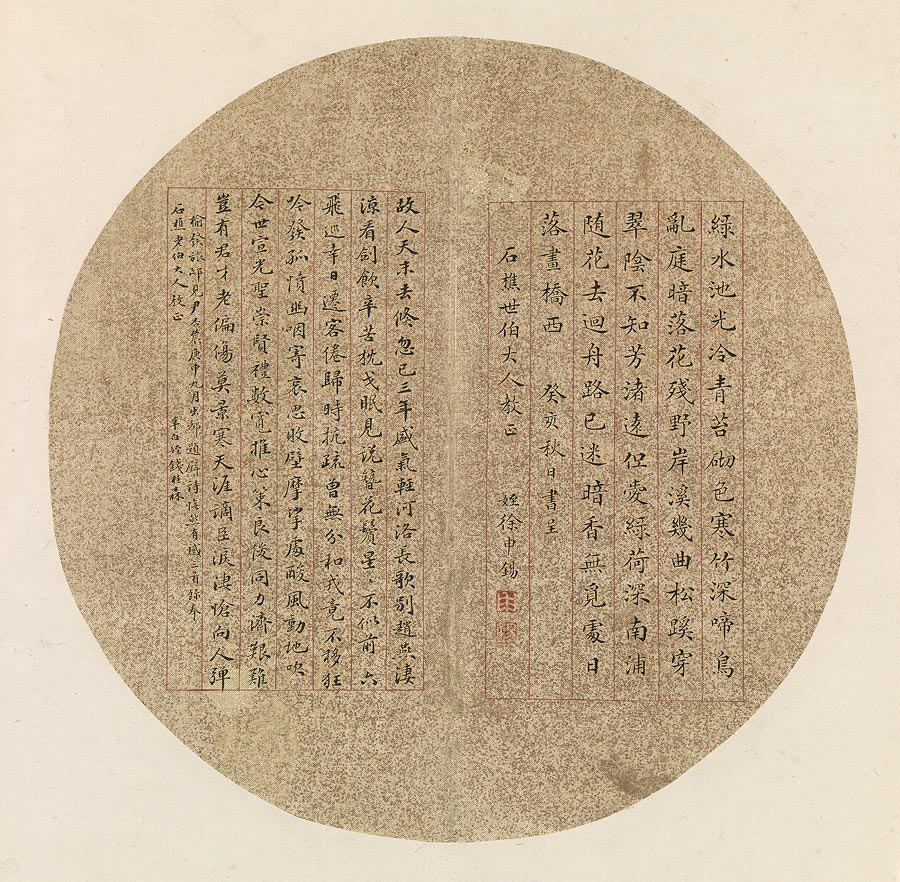 綠水池光冷青苔砌色寒竹深啼鳥
亂庭暗落花殘野岸溪幾曲松蹊穿
翠陰不知芳渚遠但愛綠荷深南浦
随花去迴舟路已迷暗香無覓處日
落畫橋西 癸亥秋日書呈
石樵世伯大人教正 姪徐申錫
故人天末去倏忽已三年盛氣輕河洛長歌別趙燕淒
涼看劍飲辛苦枕戈眠見説簪花鬢星〻不似前 六
飛巡幸日遷客倦歸時抗疏曾無分和戎竟不移狂
吟發孤憤幽咽寄哀思壁摩挲處酸風動地吹
今世宣光聖崇賢禮數寬推心策良俊同力濟艱難
豈有君才老偏傷莫景寒天涯謫臣淚淒愴向人彈
旅邸見尹杏農庚申九月出都題壁詩有感三首録奉
石樵老伯大人教正 姪錢桂森